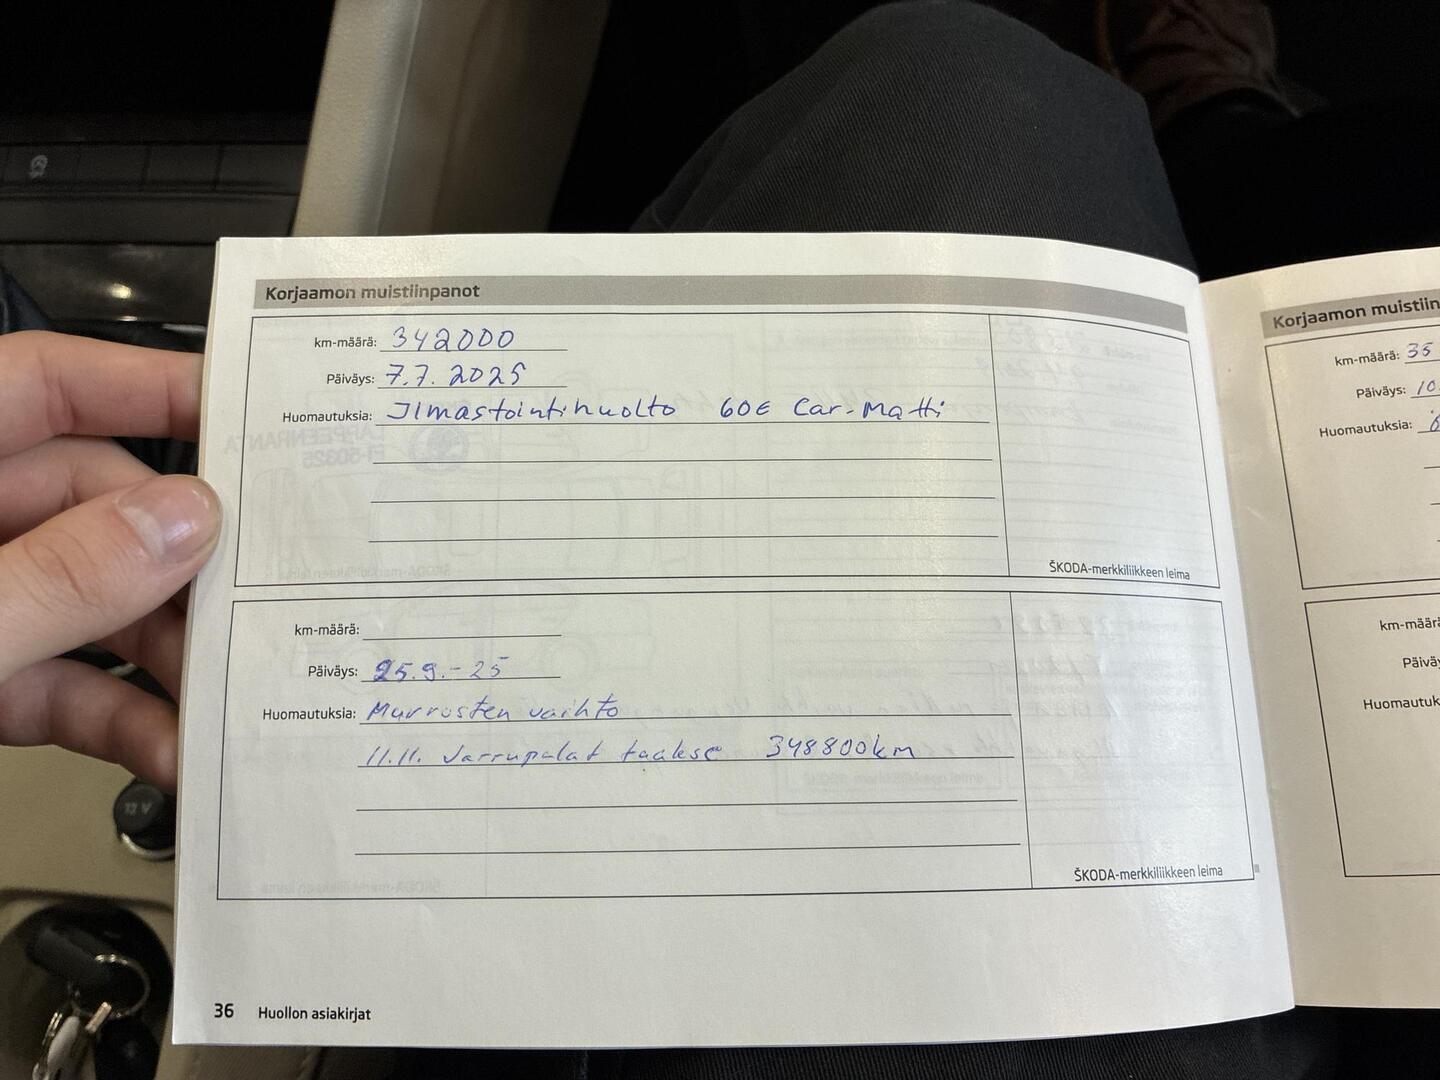 Korjaamon muistiinpanot
km-määrä: 342000
Päiväys: 7.7. 2025
Huomautuksia: Ilmastointihuolto 60€ Car-Matti
ŠKODA-merkkiliikkeen leima
km-määrä:
Päiväys: 25.9.-25
Huomautuksia: Murrosten vaihto
11.11. Jarrupalat taakse 348800km
ŠKODA-merkkiliikkeen leima
36 Huollon asiakirjat
Korjaamon
km-määrä: 35
Päiväys: 10.
Huomautuksia:
12 V